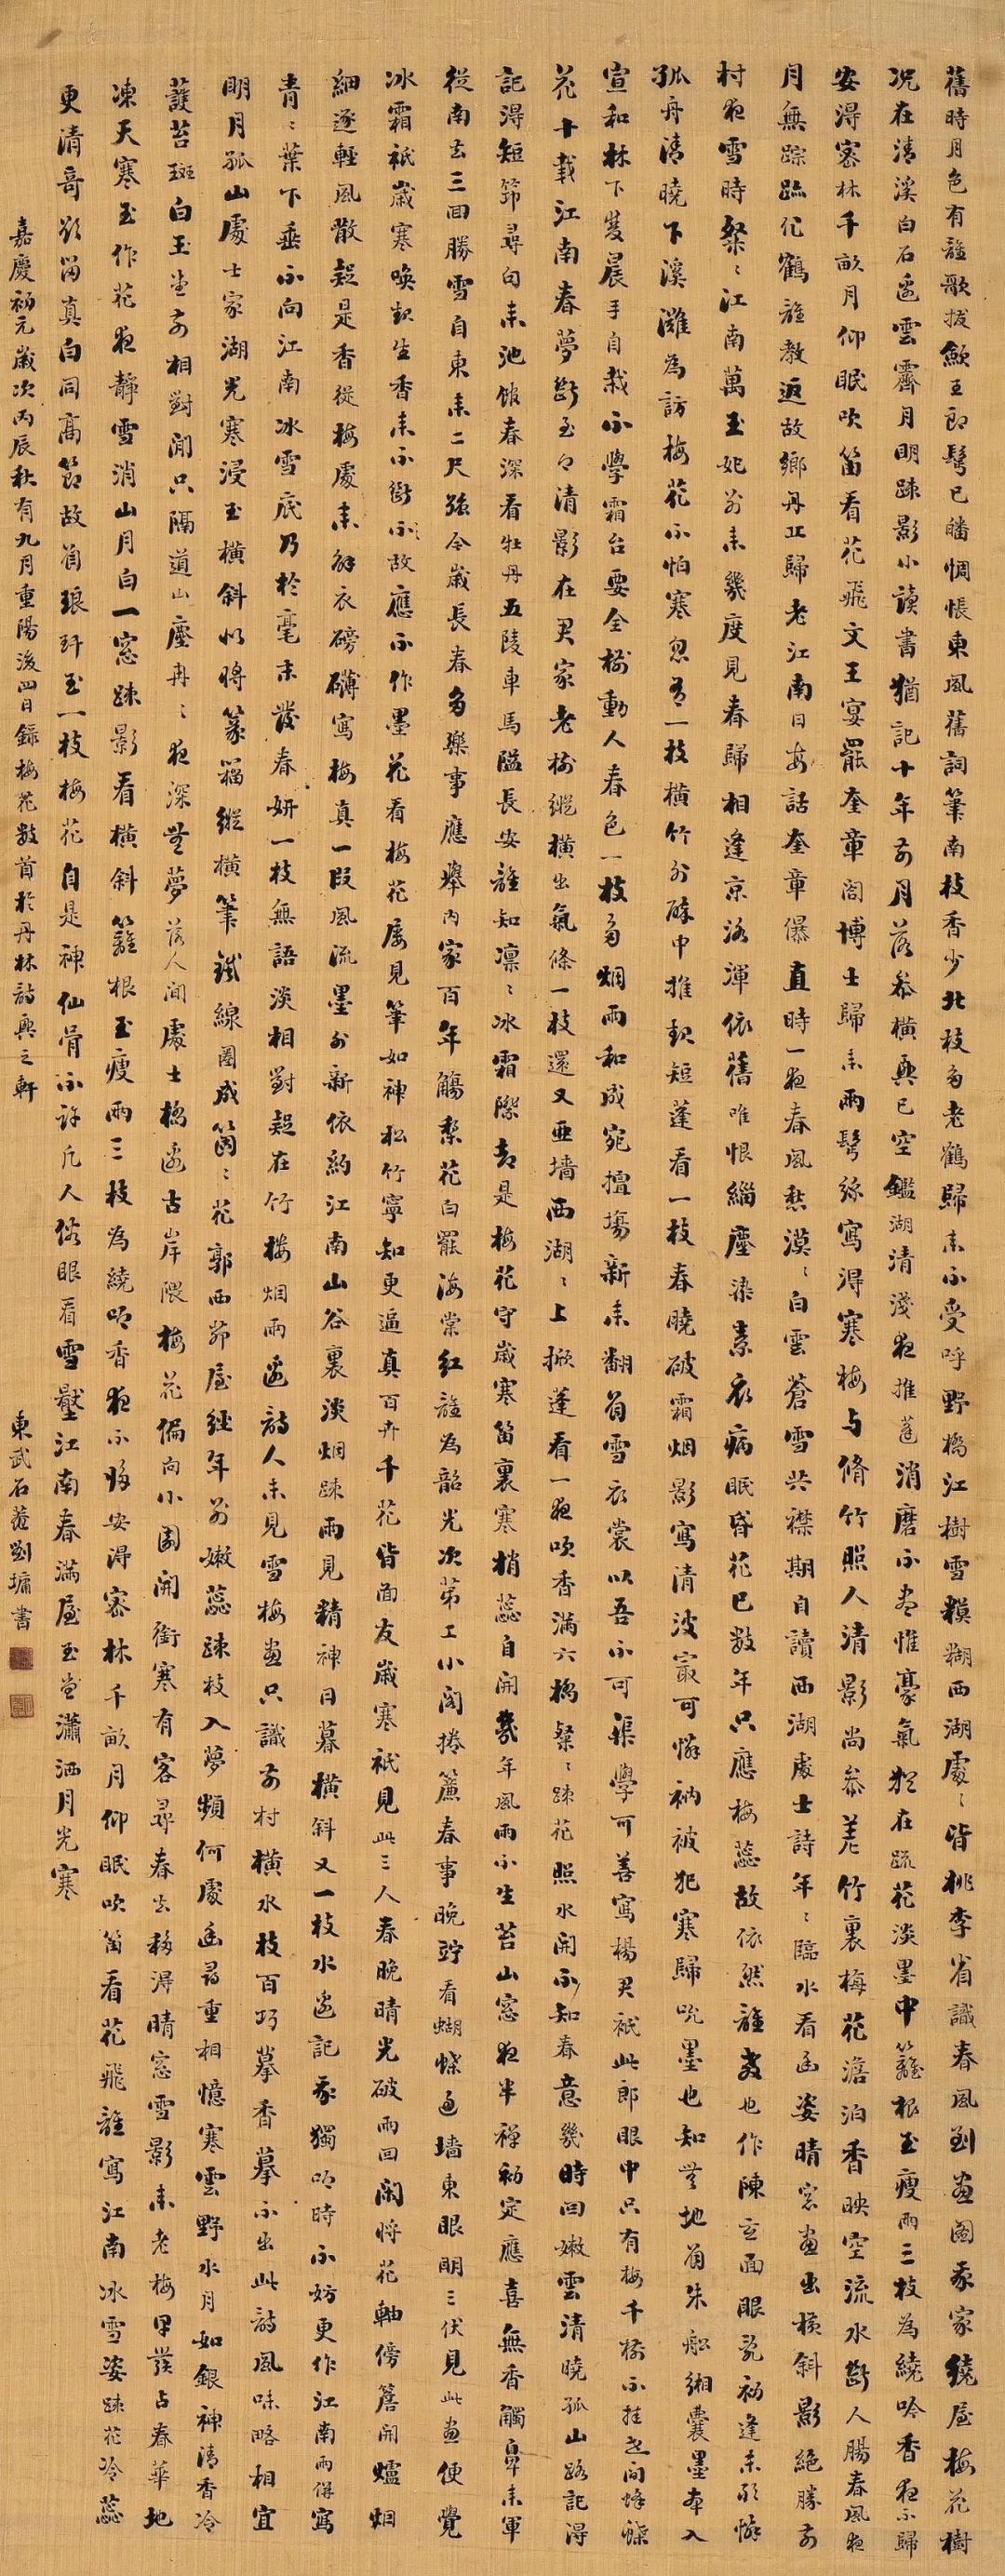 舊時月色有誰歌拔歙王郎鬓已皤惆悵東風舊詞筆南枝香少北枝多老鶴歸來不受呼野橋江樹雪糢糊西湖處〻皆桃李省識春風到畫圖家家繞屋梅花樹
況在清溪白石邊雲霽月明踈影小讀書猶記十年前月落參橫興已空鑑湖清淺夜推蓬消磨不盡惟豪氣猶在疏花淡墨中籬根玉瘦兩三枝為繞吟香夜不歸
安得密林千畝月仰眠吹笛看花飛文王宴罷奎章閣博士歸來兩鬢絲寫得寒梅与脩竹照人清影尚參差竹裏梅花澹泊香映空流水斷人腸春風夜
月無踪跡化鶴誰教返故鄉丹丘歸老江南日每話奎章儤直時一夜春風愁漠〻白雲蒼雪共襟期自讀西湖處士詩年〻臨水看幽姿晴窓畫出橫斜影絕勝前
村夜雪時粲〻江南萬玉妃別來幾度見春歸相逢京洛渾依舊唯恨緇塵染素衣病眠昏花已數年只應梅蕊故依然誰教也作陳玄面眼亂初逢未敢憐
孤舟清曉下溪灘為訪梅花不怕寒忽有一枝橫竹外醉中推起短蓬看一枝春曉破霜烟影寫清波最可憐衲被犯寒歸吮墨也知無地著朱鉛緗囊墨本入
宣和林下幾晨手自栽不學霜台要全樹動人春色一枝多烟雨和成宛擅場新來翻著雪衣裳以吾不可渠學可善寫楊君祇此郎眼中只有梅千樹不挂世間蜂蝶
花十載江南春夢斷玉白清影在君家老樹縱橫出氣條一枝還又亜墻西湖〻上掀蓬看一夜吹香滿六橋粲〻踈花照水開不知春意幾時回嫩雲清曉孤山路記得
記得短筇尋句來池館春深看牡丹五陵車馬隘長安誰知凛〻冰霜際却是梅花守歲寒笛裏寒梢蕊自開幾年風雨不生苔山窓夜半禪初定應喜無香觸鼻來軍
從南去三回勝雪自東來二尺強今歲長春多樂事應舉內家百年觴梨花白罷海棠紅誰為韶光次苐工小閣捲簾春事晚竚看蝴蝶過墻東眼明三伏見此畫便覺
冰霜祇歲寒喚起生香來不斷不故應不作墨花看梅花屢見筆如神松竹寧知更逼真百卉千花皆面友歲寒祇見此三人春晚晴光破雨回閑將花軸傍簷開爐烟
細逐輕風散疑是香從梅處來解衣磅礴寫梅真一段風流墨外新依約江南山谷裏淡烟踈雨見精神日暮橫斜又一枝水邊記我獨吟時不妨更作江南雨併寫
青〻葉下垂不向江南冰雪底乃於毫末發春妍一枝無語淡相對疑在竹樓烟雨邊詩人未見雪梅畫只識前村橫水枝百巧摹香摹不出此詩風味略相宜
明月孤山處士家湖光寒浸玉橫斜似將篆籀縱橫筆鐵線圈成箇〻花郭西茆屋經年別嫩蕊踈枝入夢頻何處幽尋重相憶寒雲野水月如銀神清香冷
護苔斑白玉堂前相對閒只隔道山塵冉〻夜深無夢落人間處士橋邊古岸隈梅花偏向小園開銜寒有客尋春去移得晴窓雪影來老梅早發占春華地
凍天寒玉作花夜靜雪消山月白一窓踈影看橫斜籬根玉瘦兩三枝為繞吟香夜不歸安得密林千畝月仰眠吹笛看花飛誰寫江南冰雪姿踈花冷蕊
更清奇欲留真白同高節故著琅玕玉一枝梅花自是神仙骨不許凡人俗眼看雪壓江南春滿屋玉堂瀟洒月光寒
嘉慶初元歲次丙辰秋有九月重陽後四日錄梅花數首於丹林詩興之軒　東武石菴劉墉書